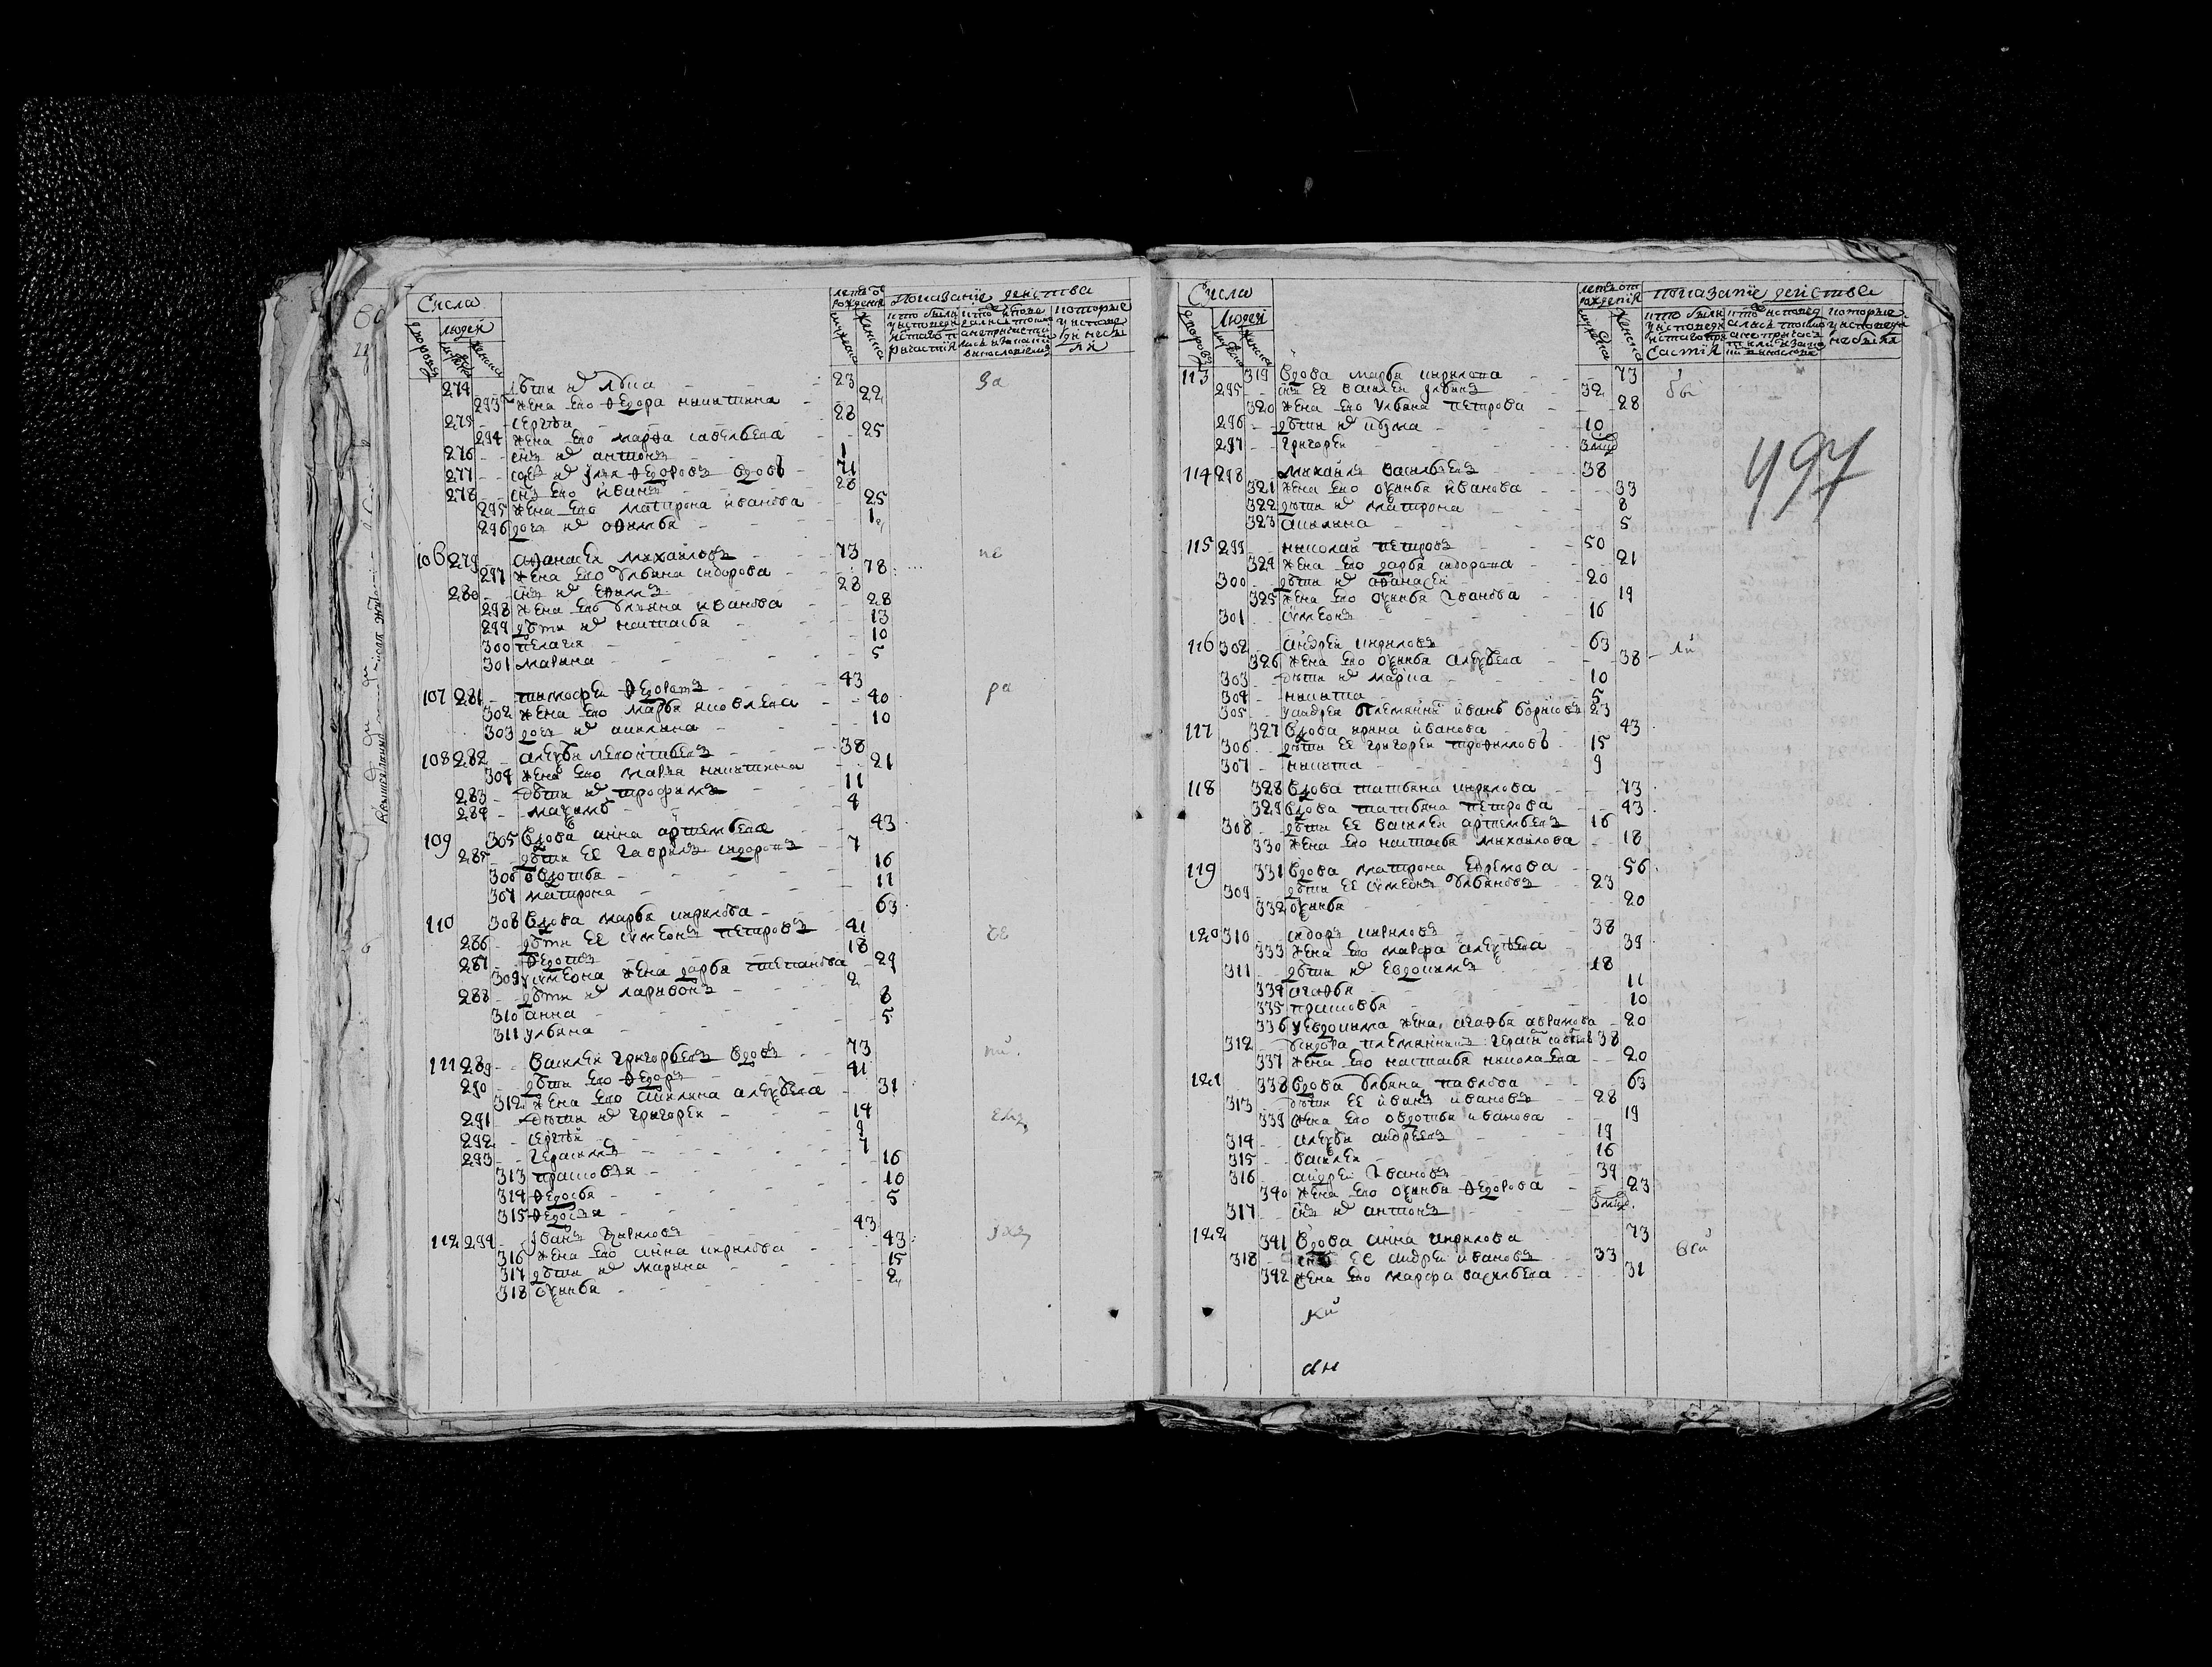 Числа
людей
274 дети их Лука 23
293 жена его Федора никитина 22
275 сергеи 28
294 жена его марфа савельева 25
276 снъ их антонъ 1
277 Федоровъ вдовъ 71
278 снъ его иванъ 28
295 жена его матрона иванова 25
296 дочь их офимья 1
106 279 афанасеи михаиловъ 73
297 жена его Ульяна сидорова 78
280 снъ их ефимъ 28
298 жена его Ульяна иванова 28
299 дети их настасья 13
300 пелагия 10
301 марина 5
107 281 тимофеи Федоровъ 43
302 жена его марья яковлева 40
303 дочь их акилина 10
108 282 алеѯеи леонтьевъ 38
304 жена его марья никитина 21
283 дети их трофимъ 11
284 маѯимъ 4
109 305 вдова анна артемьева 43
285 дети ее гаврилъ сидоровъ 7
306 овдотья 16
307 матрона 11
110 308 вдова марья кирилова 63
286 дети ее сѵмеонъ петровъ 41
287 Федотъ 18
309 у сѵмеона жена дарья степанова 29
288 дети их ларивонъ 2
310 анна 8
311 ульяна 5
111 289 василеи григорьевъ вдовъ 73
290 дети его Федоръ 41
312 жена его акилина алеѯеева 31
291 дети их григореи 14
292 сергеи 9
293 герасимъ 7
313 прасковья 16
314 Федосья 10
315 Федосья 5
112 294 иванъ кириловъ 43
316 жена его анна кирилова 43
317 дети их марина 15
318 оѯинья 2
Числа
людей
113 319 вдова марья кирилова 73
295 снъ ее василеи ульянъ 32
320 жена его ульяна петрова 28
296 дети их кузма 10
297 григореи 3 мцъ
497
114 298 михаила васильевъ 38
321 жена его оѯинья иванова 33
322 дети их матрона 8
323 акилина 5
115 299 николаи петровъ 50
324 жена его дарья сидорова 21
300 дети их афанасеи 20
325 жена его оѯинья иванова 19
301 сѵмеонъ 16
116 302 андреи кириловъ 63
326 жена его оѯинья алеѯеева 38
303 дети их марка 10
304 никита 5
305 у андрея племянникъ иванъ борисовъ 23
117 327 вдова ирина иванова 43
306 дети ее григореи трофимовъ 15
307 никита 9
118 328 вдова татьяна кирилова 73
329 вдова татьяна петрова 43
308 дети ее василеи артемьевъ 16
330 жена его настасья михаилова 18
119 331 вдова матрона ефремова 56
309 дети ее сѵмеонъ Ульяновъ 23
332 оѯинья 20
120 310 сидоръ кириловъ 38
333 жена его марфа алеѯеева 39
311 дети их евдокимъ 18
334 агафья 11
335 прасковья 10
336 у евдокима жена агафья аврамова 20
312 у сидора племянникъ герасимъ 38
337 жена его настасья николаева 20
121 338 вдова Ульяна павлова 63
313 дети ее иванъ ивановъ 28
339 жена его овдотья иванова 19
314 алеѯеи андреевъ 19
315 василеи 16
316 андреи ивановъ 34
340 жена его оѯинья Федорова 23
317 снъ их антонъ 3 мцъ
122 341 вдова анна кирилова 73
318 снъ ее андреи ивановъ 33
342 жена его марфа васильева 31